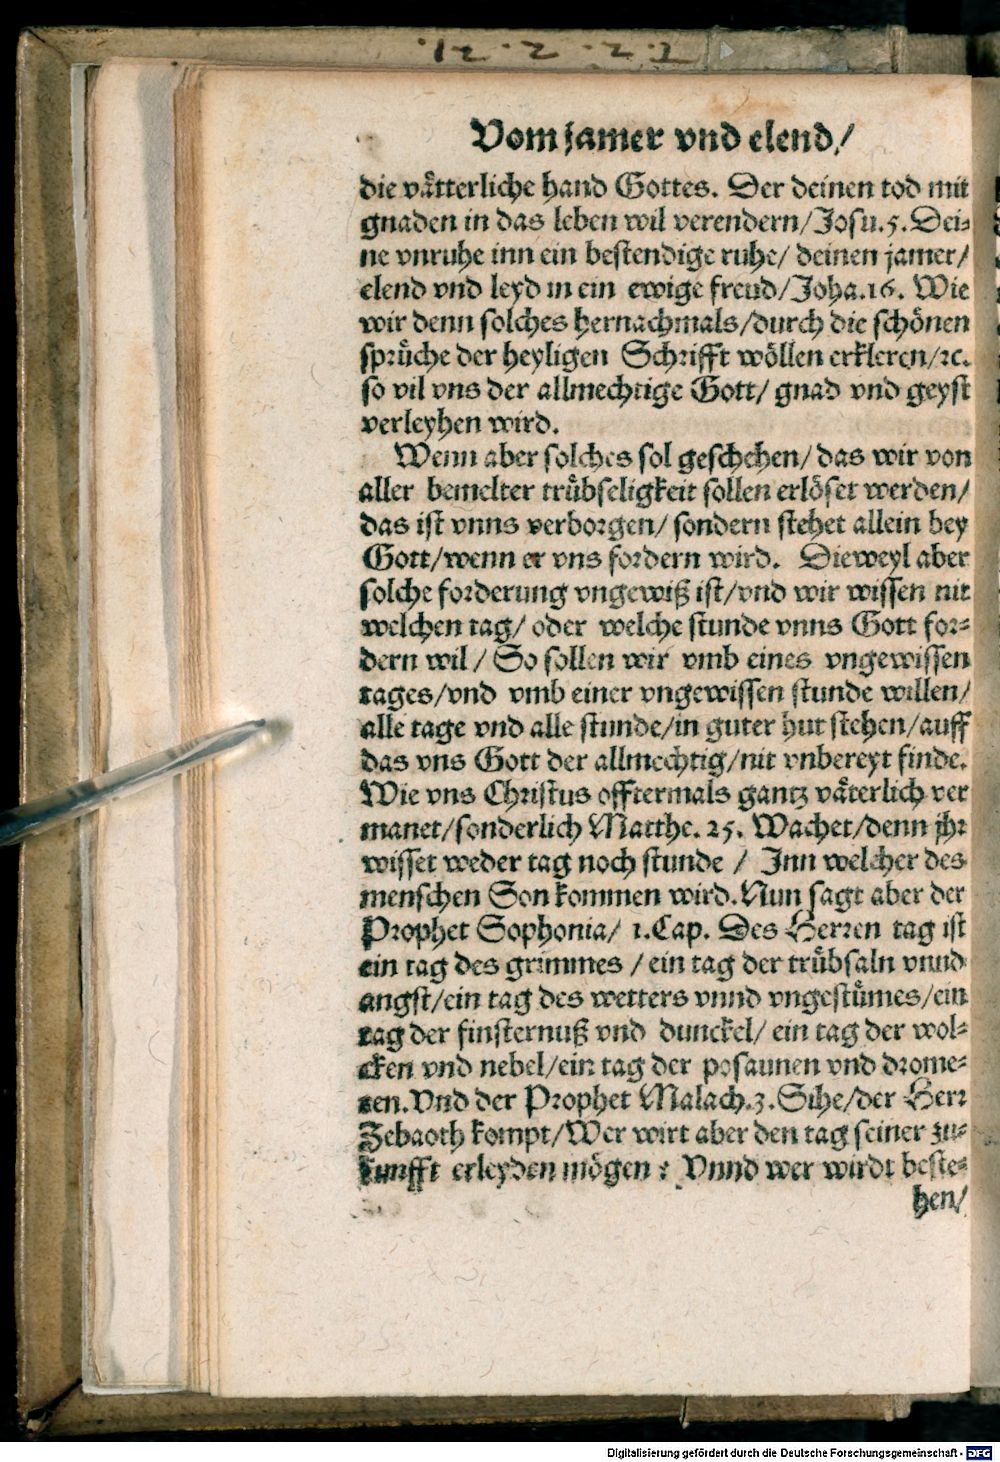 Vom jamer vnd elend/
die vaͤtterliche hand Gottes. Der deinen tod mit
gnaden in das leben wil verendern/Josu.5.Dei-
ne vnruhe inn ein bestendige ruhe/ deinen jamer/
elend vnd leyd in ein ewige freud/Joha.16. Wie
wir denn solches hernachmals/durch die schoͤnen
spruͤche der heyligen Schrifft woͤllen erkleren/ꝛc.
so vil vns der allmechtige Gott/ gnad vnd geyst
verleyhen wird.
Wenn aber solches sol geschehen/ das wir von
aller bemelter truͤbseligkeit sollen erloͤset werden/
das ist vnns verborgen/ sondern stehet allein bey
Gott/wenn er vns fordern wird. Dieweyl aber
solche forderung vngewiß ist/vnd wir wissen nit
welchen tag/ oder welche stunde vnns Gott for-
dern wil / So sollen wir vmb eines vngewissen
tages/vnd vmb einer vngewissen stunde willen/
alle tage vnd alle stunde/in guter hut stehen/auff
das vns Gott der allmechtig/nit vnbereyt finde.
Wie vns Christus offtermals gantz vaͤterlich ver
manet/sonderlich Matthe. 25. Wachet/denn jhr
wisset weder tag noch stunde / Inn welcher des
menschen Son kommen wird. Nun sagt aber der
Prophet Sophonia/ 1.Cap. Des Herren tag ist
ein tag des grimmes / ein tag der truͤbsaln vnnd
angst/ein tag des wetters vnnd vngestuͤmes/ein
tag der finsternuß vnd dunckel/ ein tag der wol-
cken vnd nebel/ein tag der posaunen vnd drome-
ten.Vnd der Prophet Malach.3. Sihe/der Herr
Zebaoth kompt/Wer wirt aber den tag seiner zu-
kunfft erleyden moͤgen? Vnnd wer wirdt beste-
hen/
Digitalisierung gefördert durch die Deutsche Forschungsgemeinschaft - DFG